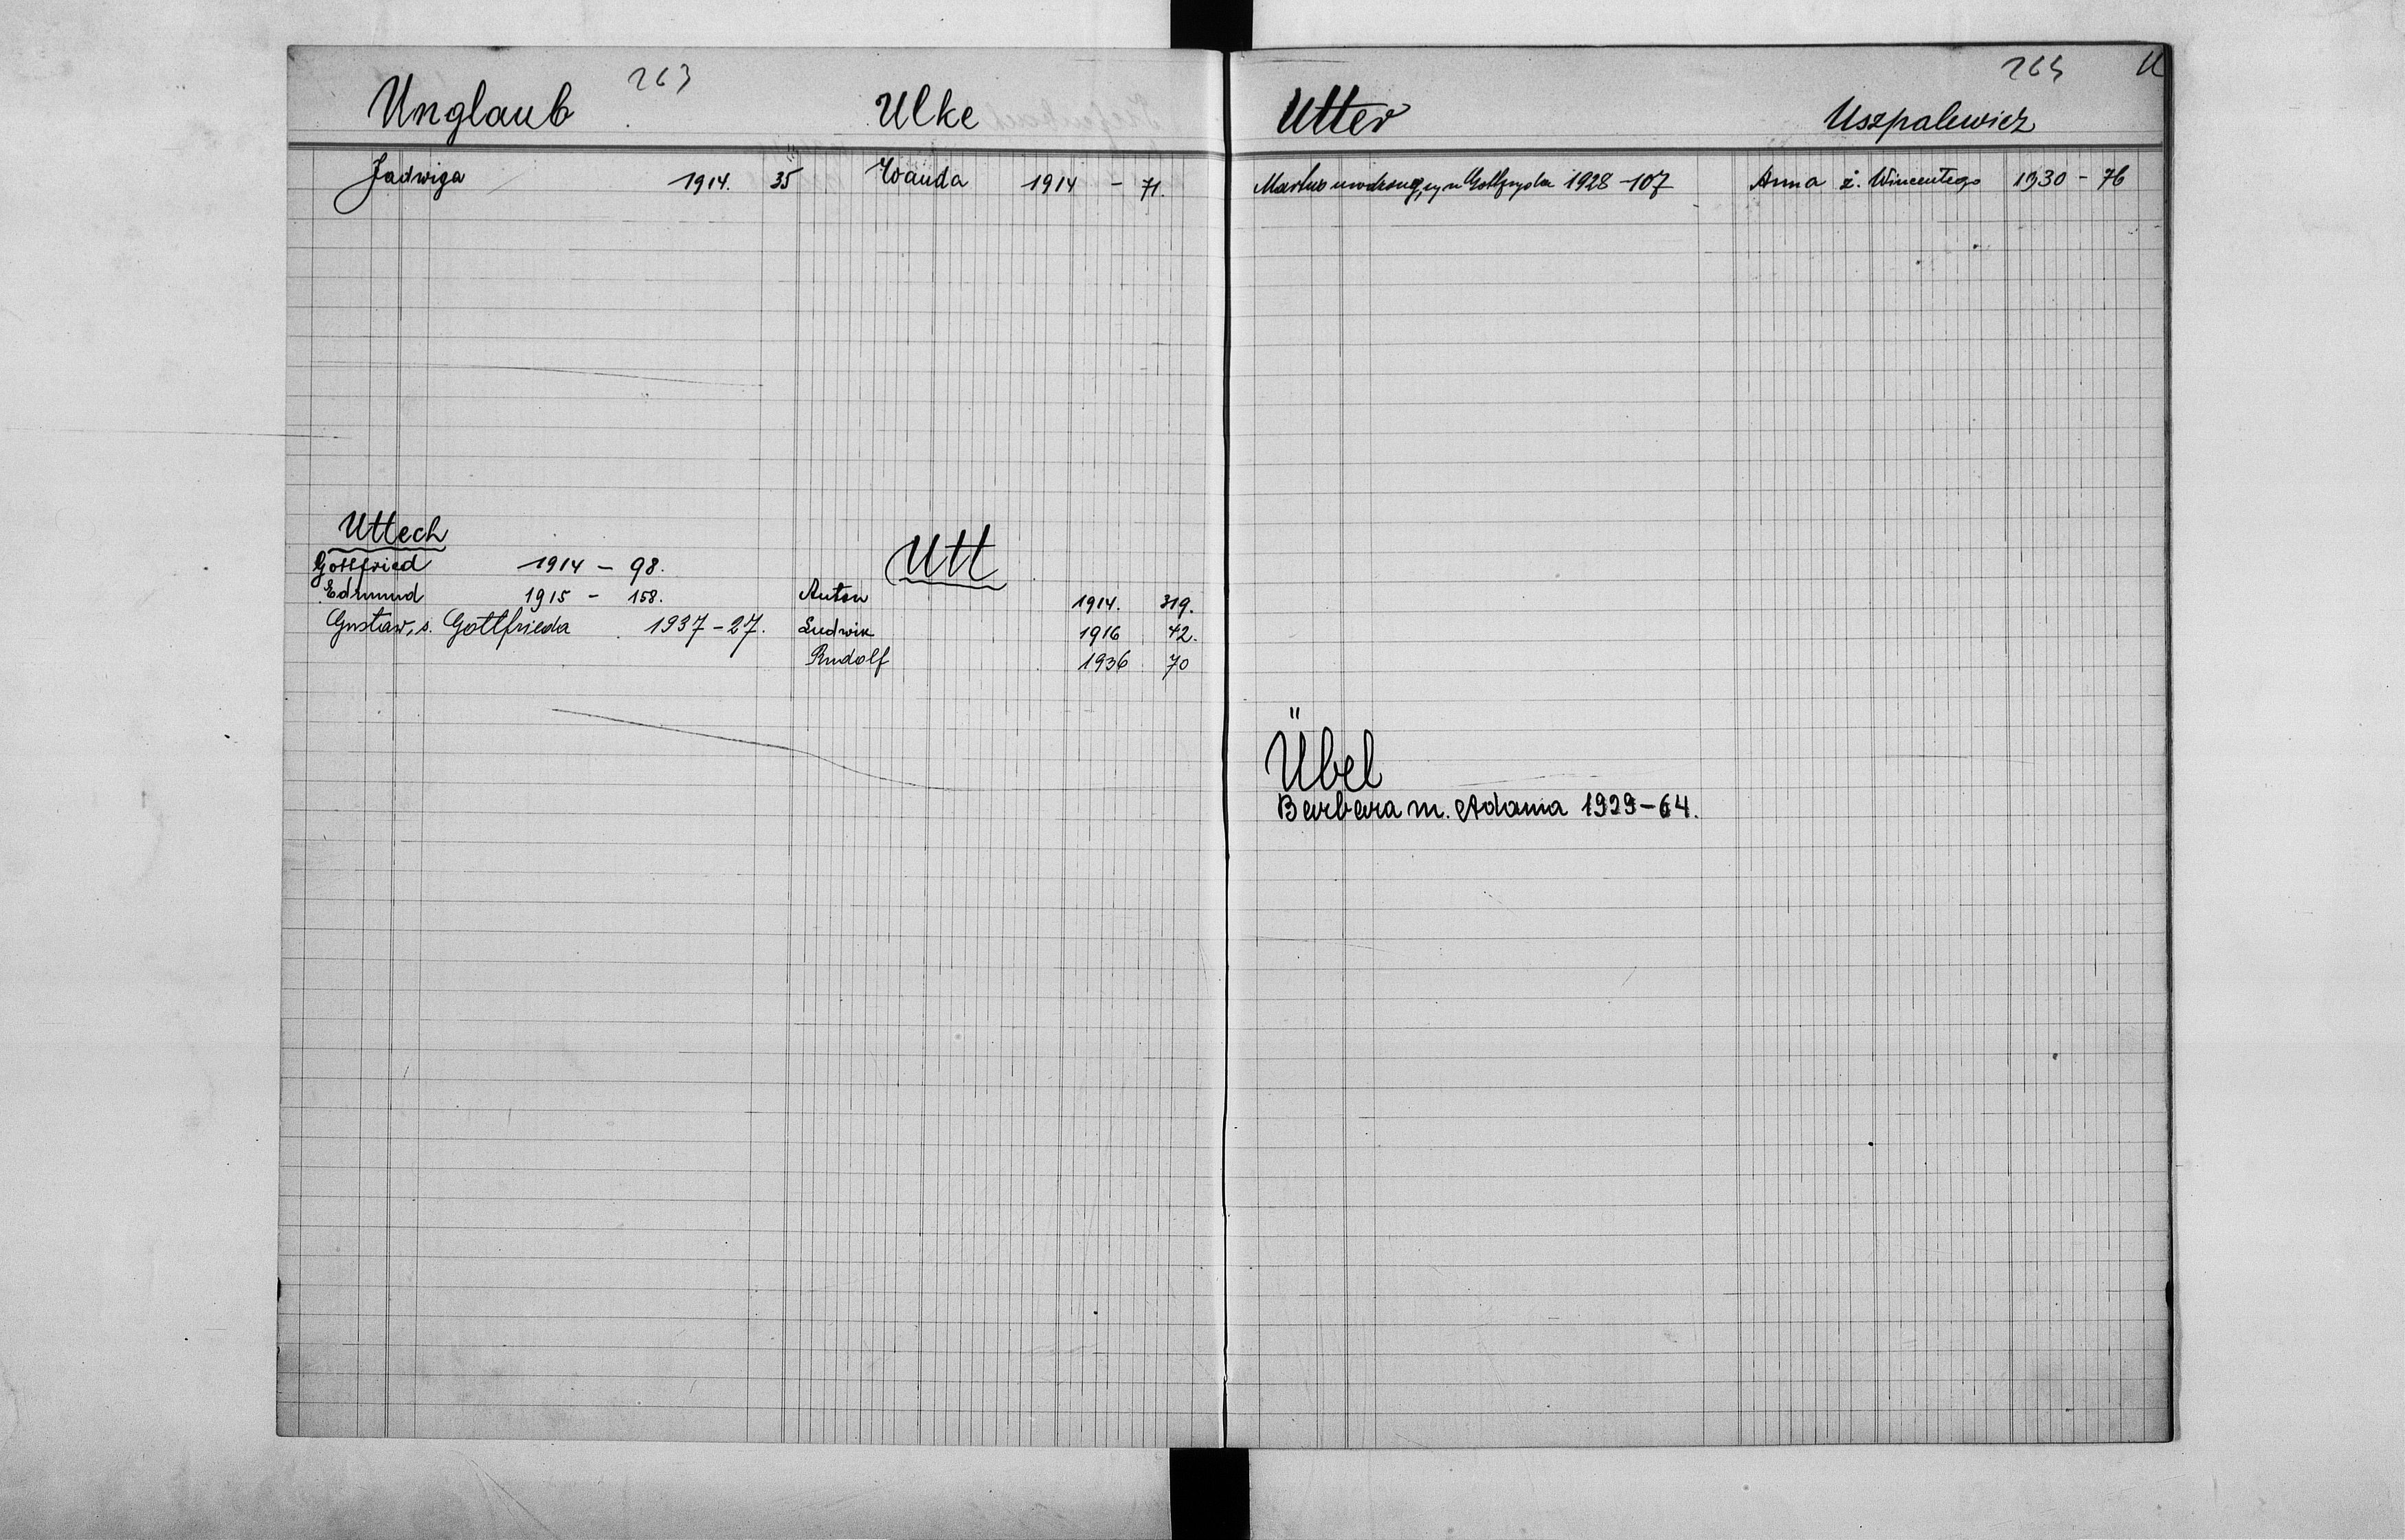 263
Unglaub
Jadwiga 1914. 35
Ulke
Wanda 1914 - 71.
Uttech
Gottfried 1914 - 98.
Edmund 1915 - 158.
Gustaw, s. Gottfrieda 1937 - 27.
Utt
Anton 1914. 319.
Ludwik 1916 42.
Rudolf 1936 70
U
Utter
syn Gottfryda 1928 - 107
Uszpalewicz
Anna ż. Wincentego 1930 - 76
Übel
Barbara m. Adama 1929 - 64.